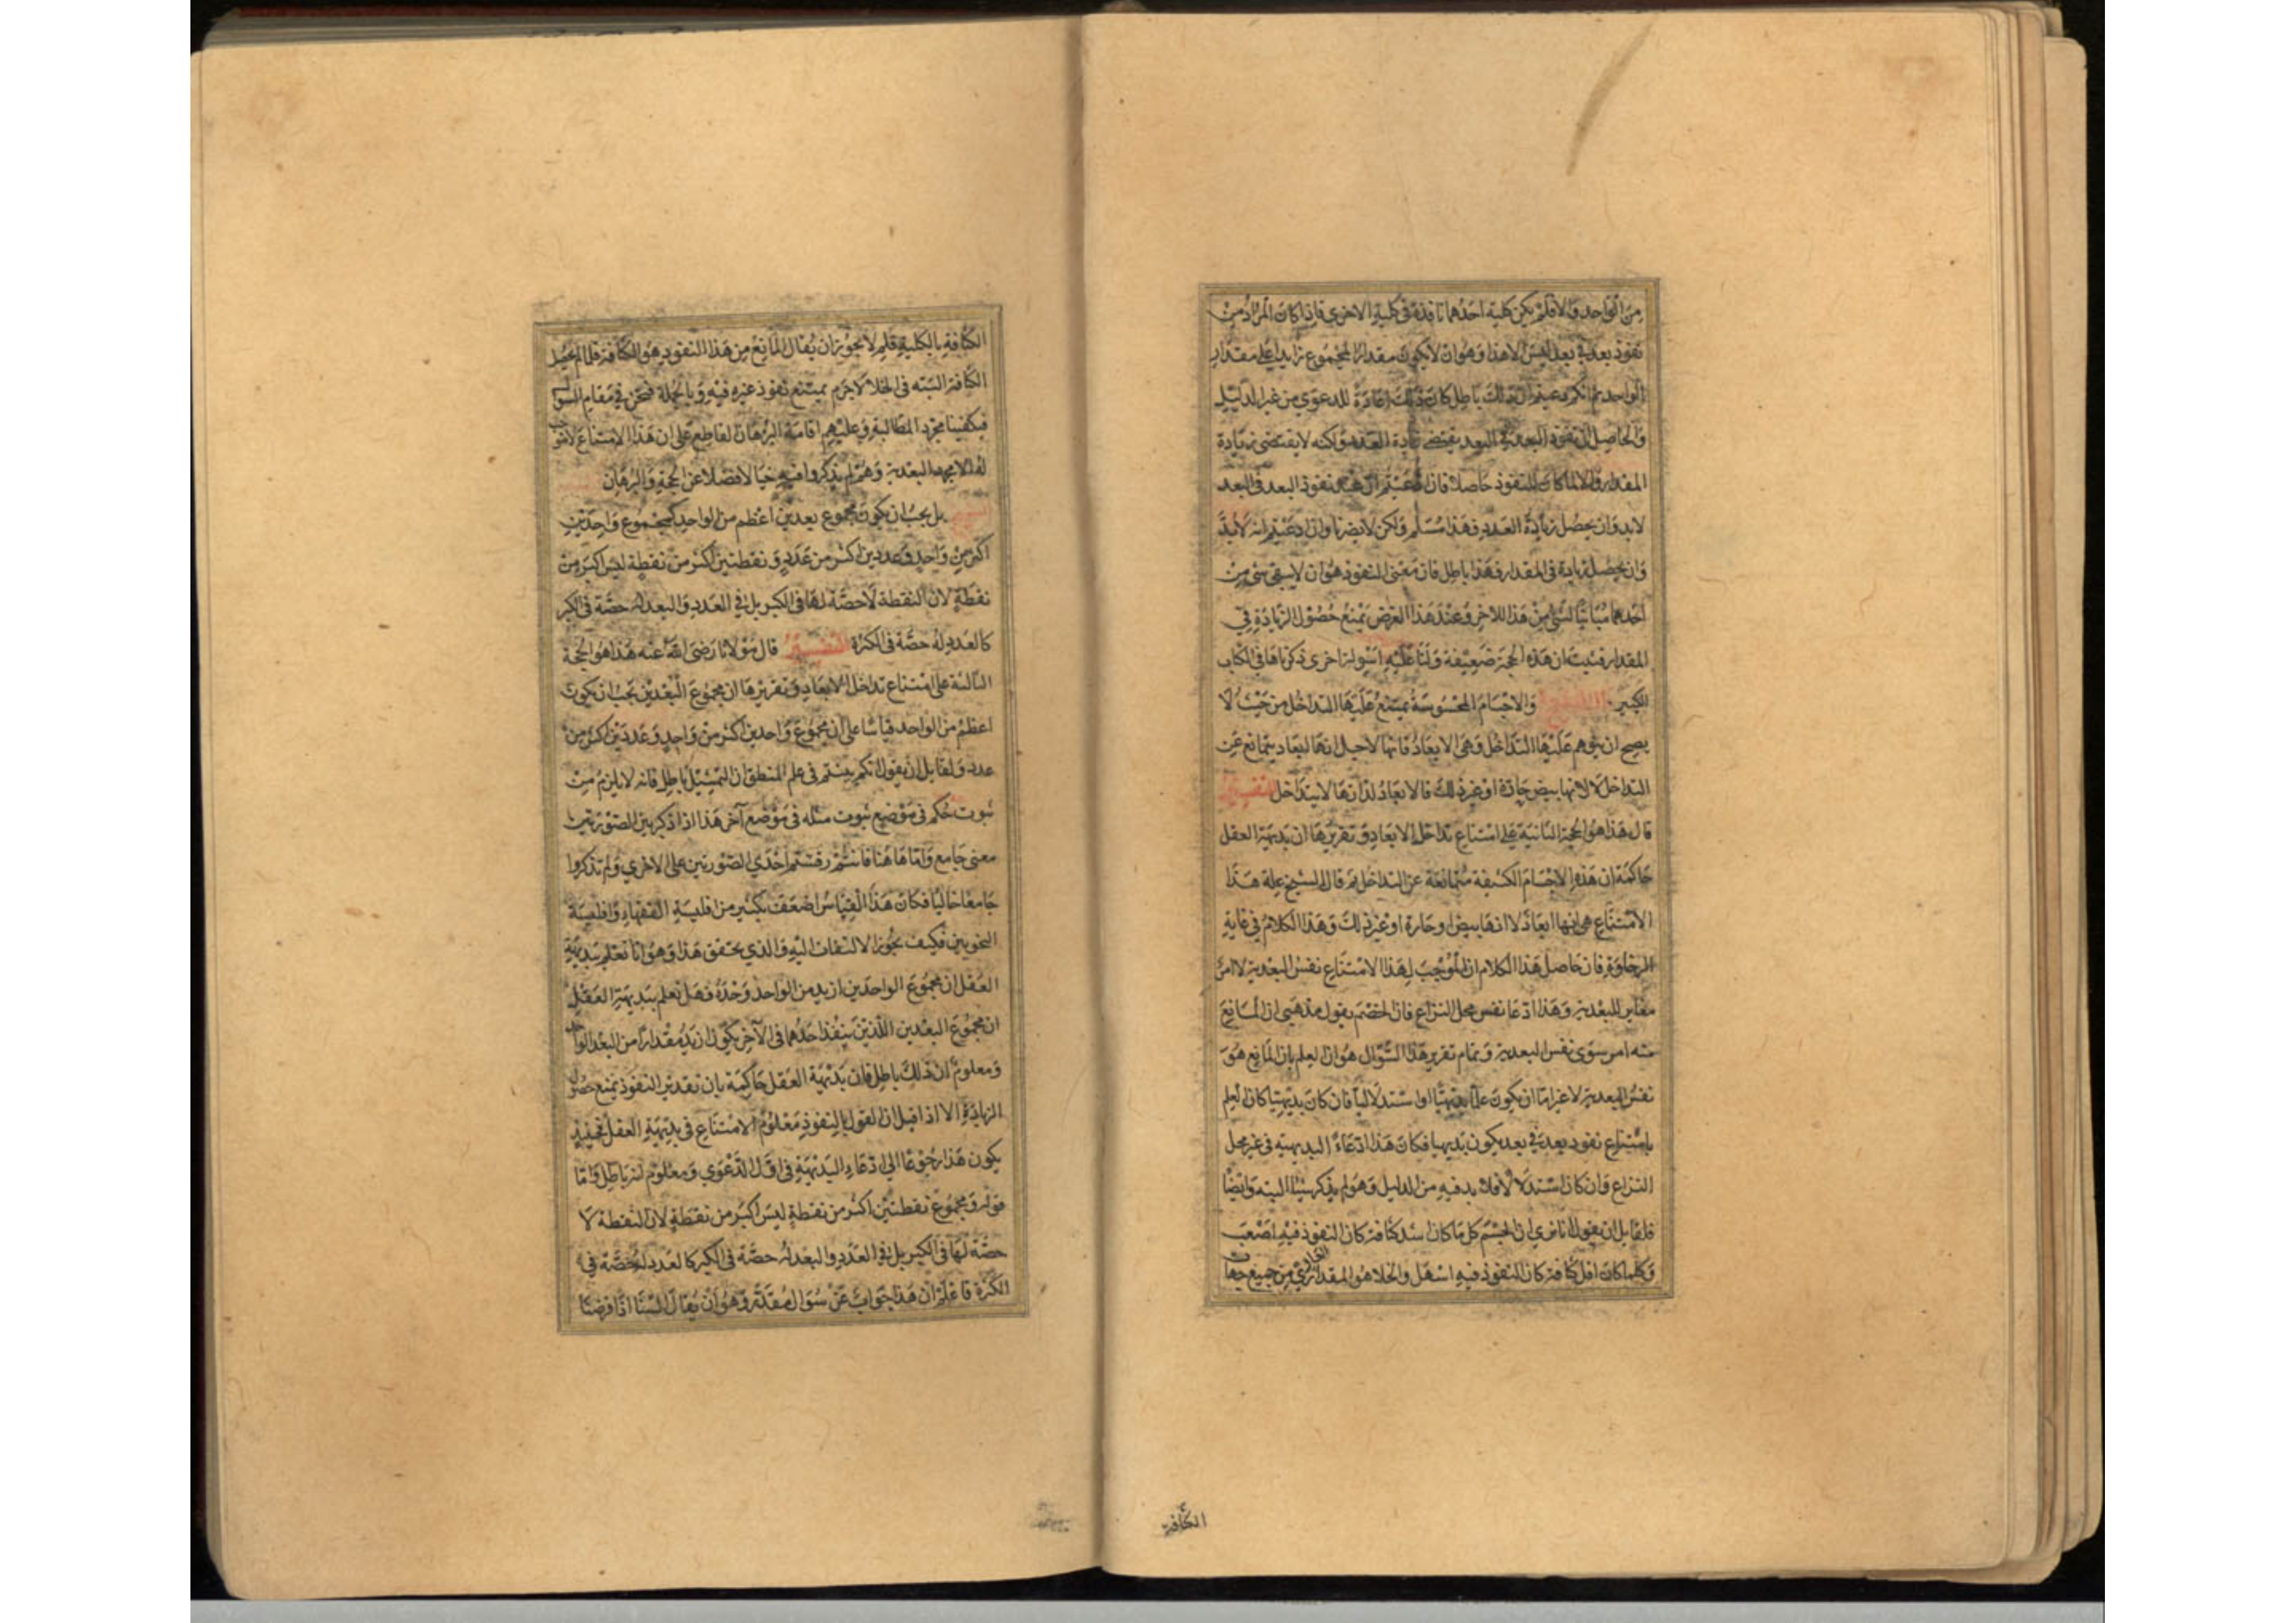 من الواحد والا فلم يكن كلية احدهما نافذة فى كلية الاخرى فاذا كان المراد من
نفوذ بعد فى بعد ليس الا هذا وهو ان لا يكون مقدار المجموع زايدا على مقدار
الواحد ثم انكم دعيتم ان ذلك باطل كان ذلك اعادة للدعوى من غير الدليل
والحاصل ان نفوذ البعد فى البعد يقتضى زيادة العدد ولكنه لا يقتضى زيادة
المقدار والا لما كان النفوذ حاصلا فان ادعيتم ان عند نفوذ البعد فى البعد
لابد وان يحصل زيادة العدد فهذا مسلم ولكن لا يضرنا وان ادعيتم انه لابد
وان يحصل زيادة فى المقدار فهذا باطل فان معنى النفوذ هو ان لا يبقى شئ من
احدهما مباينا لشئ من هذا للاخر وعند هذا الفرض يمنع حصول الزيادة فى
المقدار فثبت ان هذه الحجة ضعيفة ولنا عليه اسولة اخرى ذكرناها فى الكتاب
الكبير والاجسام المحسوسة يمتنع عليها التداخل من حيث لا
يصح ان يتوهم عليها التداخل وهى الابعاد فانها لاجل انها ابعاد يتمانع عن
التداخل لا لانها بيض حارة او غير ذلك فالابعاد لذاتها لا يتداخل التفسير
قال هذا هو الحجة الثانية على امتناع تداخل الابعاد وتقريرها ان بديهية العقل
حاكمة ان هذه الاجسام الكثيفة متمانعة عن التداخل ثم قال الشيخ علة هذا
الامتناع هى انها ابعاد لا انها بيض او حارة او غير ذلك وهذا الكلام فى غاية
الرخاوة فان حاصل هذا الكلام ان الموجب لهذا الامتناع نفس البعدية لا امر
مغاير للبعدية وهذا ادعا نفس محل النزاع فان الخصم يقول مذهبى ان المانع
منه امر سوى نفس البعدية وتمام تقرير هذا السؤال هو ان العلم بان المانع هو
نفس البعدية لا غير اما ان يكون علما بديهيا او استدلاليا فان كان بديهيا كان العلم
بامتناع نفوذ بعد فى بعد يكون بديهيا فكان هذا ادعاء البديهية فى غير محل
النزاع وان كان استدلالا فلابد فيه من الدليل وهو لم يذكر شيئا البته وايضا
فلقايل ان يقول انا نرى ان الجسم كل ما كان اشد كثافة كان النفوذ فيه اصعب
وكلما كان اقل كثافة كان النفوذ فيه اسهل والخلا هو المقدار من جميع جهات
الكثافة
الكثافة بالكلية فلم لا يجوز ان يقال المانع من هذا النفوذ هو الكثافة فلما لم يحصل
الكثافة البته فى الخلا لا جرم يمتنع نفوذ غيره فيه وبالجملة فنحن فى مقام السؤال
فيكفينا مجرد المطالبة وعليهم اقامة البرهان القاطع على ان هذا الامتناع لا موجب
له الا مجرد البعدية وهم لم يذكروا فيه خيالا فضلا عن الحجة والبرهان
بل يجب ان يكون مجموع بعدين اعظم من الواحد كمجموع واحدين
اكثر من واحد وعددين اكثر من عدد ونقطتين اكثر من نقطة ليس اكبر من
نقطة لان النقطة لا حصة لها فى الكبر بل فى العدد والبعد له حصة فى الكبر
كالعدد له حصة فى الكثرة التفسير قال مولانا رضى الله عنه هذا هو الحجة
الثالثة على امتناع تداخل الابعاد وتقريرها ان مجموع البعدين يجب ان يكون
اعظم من الواحد قياسا على ان مجموع واحدين اكثر من واحد وعددين اكثر من
عدد ولقايل ان يقول انكم بينتم فى علم المنطق ان التمثيل باطل فانه لا يلزم من
ثبوت حكم فى موضع ثبوت مثله فى موضع آخر هذا اذا ذكر بين الصورتين
معنى جامع واما هاهنا فانتم رفستم احدى الصورتين على الاخرى ولم تذكروا
جامعا خاليا فكان هذا القياس اضعف بكثير من اقيسة الفقهاء واقيسة
النحويين فكيف يجوز الالتفات اليه والذى يحقق هذا وهو انا نعلم ببديهية
العقل ان مجموع الواحدين ازيد من الواحد وحده فهل نعلم ببديهية العقل
ان مجموع البعدين اللذين ينفذ احدهما فى الآخر يكون ازيد مقدارا من البعد الواحد
ومعلوم ان ذلك باطل فان بديهية العقل حاكمة بان تقدير النفوذ يمنع حصول
الزيادة الا اذا قيل ان القول بالنفوذ معلوم الامتناع فى بديهية العقل فحينئذ
يكون هذا رجوعا الى ادعاء البديهية فى اول الدعوى ومعلوم انه باطل واما
قوله ومجموع نقطتين اكثر من نقطة ليس اكبر من نقطة لان النقطة لا
حصة لها فى الكبر بل فى العدد والبعد له حصة فى الكبر كالعدد له حصة فى
الكثرة فاعلم ان هذا جواب عن سؤال مقدر وهو ان يقال السنا اذا فرضنا